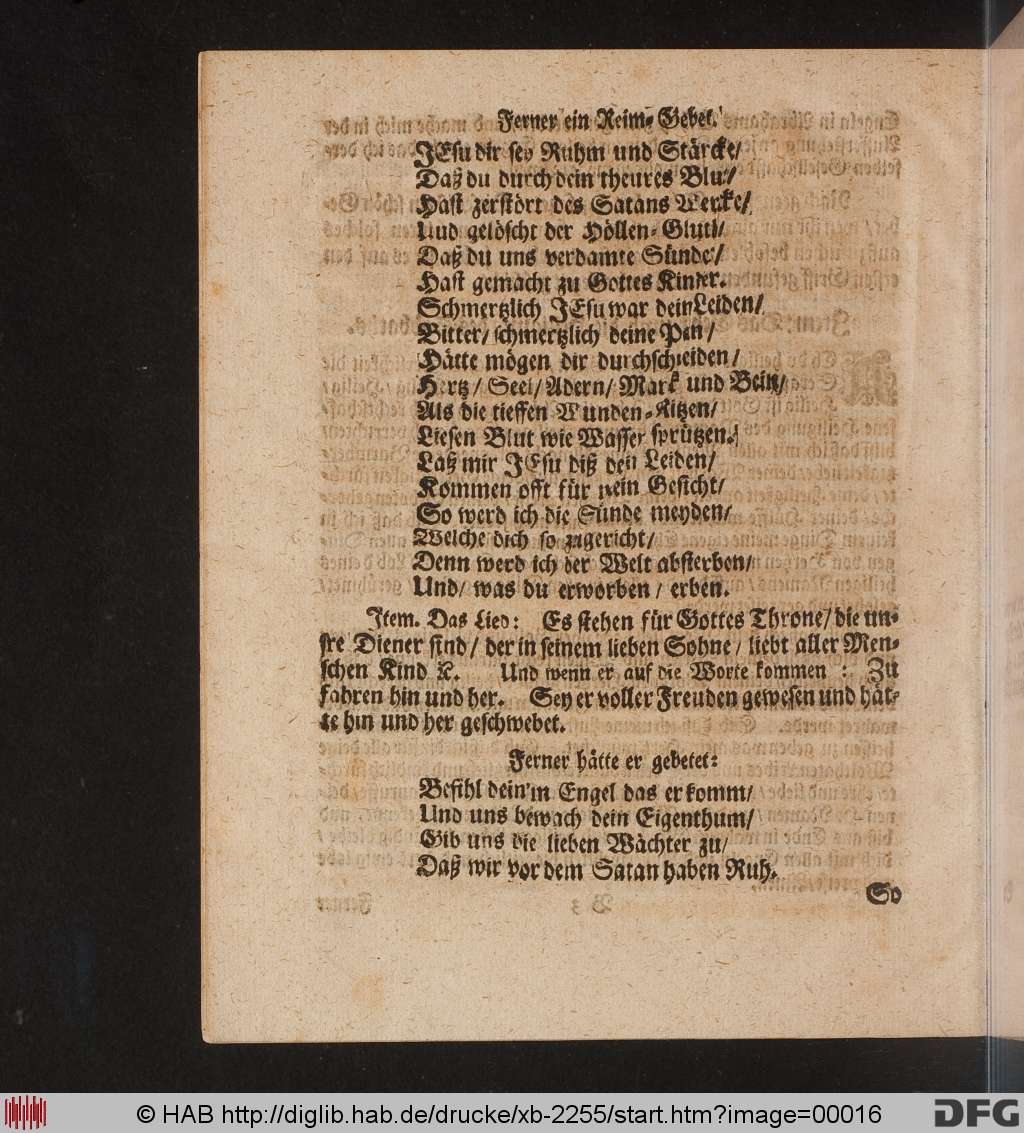 Ferner ein Reim-Gebet.
JEsu dir sey Ruhm und Stärcke/
Daß du durch dein theures Blut/
Hast zerstört des Satans Wercke/
Und gelöscht der Höllen-Glut/
Daß du uns verdamte Sünder/
Hast gemacht zu Gottes Kinder.
Schmertzlich JEsu war dein Leiden/
Bitter/ schmertzlich deine Pein/
Hätte mögen dir durchschneiden/
Hertz/ Seel/ Adern/ Mark und Bein/
Als die tieffen Wunden-Ritzen/
Liesen Blut wie Wasser sprützen.
Laß mir JEsu diß dein Leiden/
Kommen offt für mein Gesicht/
So werd ich die Sünde meyden/
Welche dich so zugericht/
Denn werd ich der Welt absterben/
Und/ was du erworben/ erben.
Item. Das Lied: Es stehen für Gottes Throne/ die un-
sre Diener sind/ der in seinem lieben Sohne/ liebt aller Men-
schen Kind ꝛc. Und wenn er auf die Worte kommen: Zu
fahren hin und her. Sey er voller Freuden gewesen und hät-
te hin und her geschwebet.
Ferner hätte er gebetet:
Befihl dein'm Engel das er komm/
Und uns bewach dein Eigenthum/
Gib uns die lieben Wächter zu/
Daß wir vor dem Satan haben Ruh.
So
© HAB http://diglib.hab.de/drucke/xb-2255/start.htm?image=00016
DFG